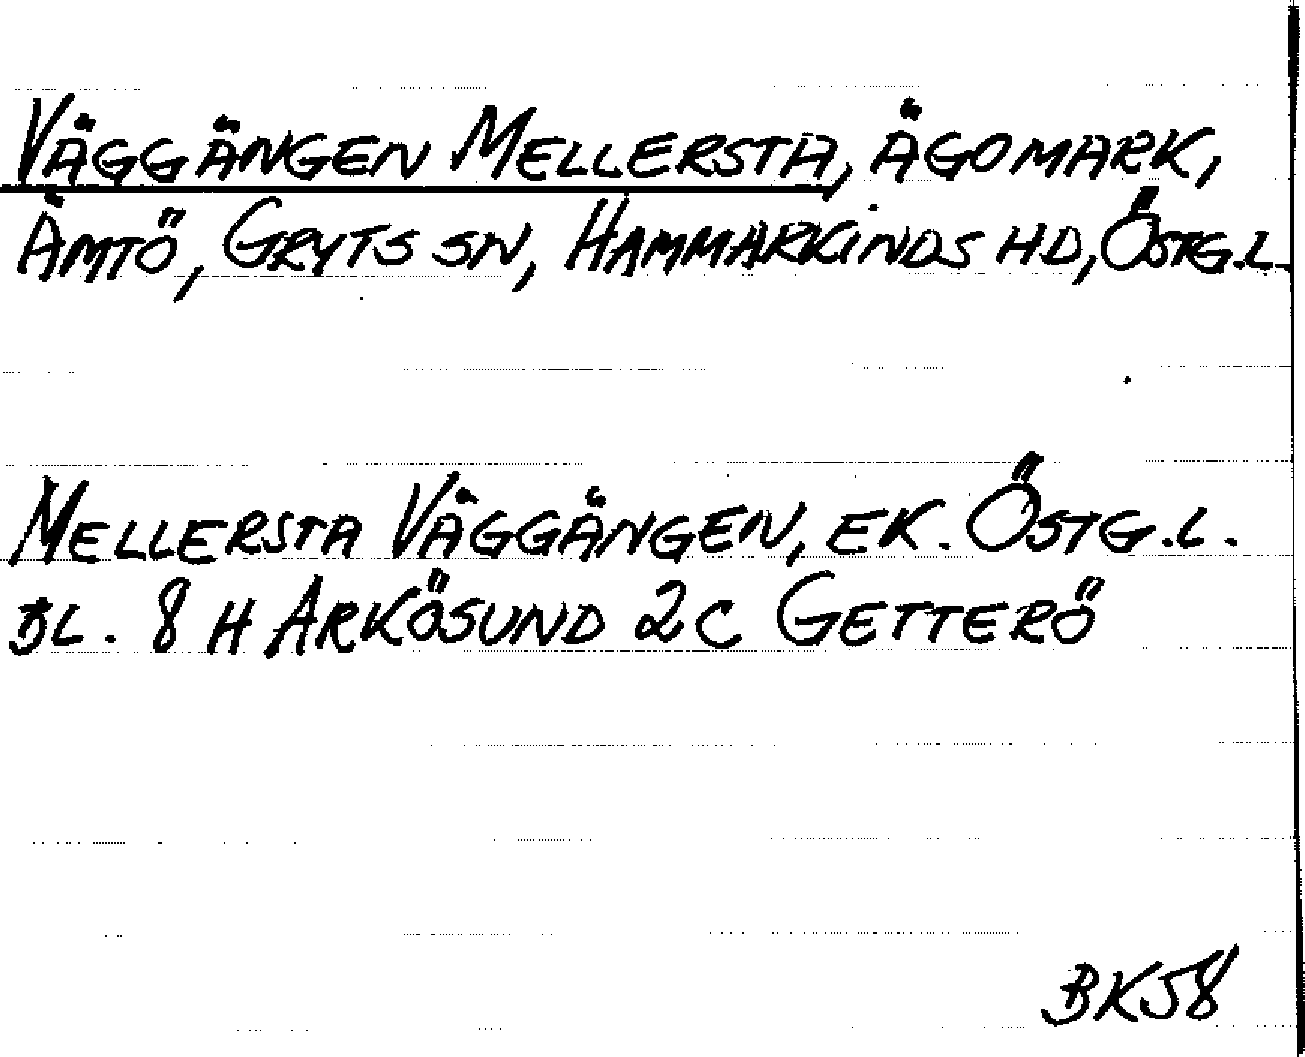 VÄGGÄNGEN MELLERSTA, ÄGOMARK,
ÄMTÖ, GRYTS SN, HAMMARKINDS HD, ÖSTG.L.
MELLERSTA VÄGGÄNGEN, EK. ÖSTG.L.
BL. 8 H ARKÖSUND 2C GETTERÖ
BK58